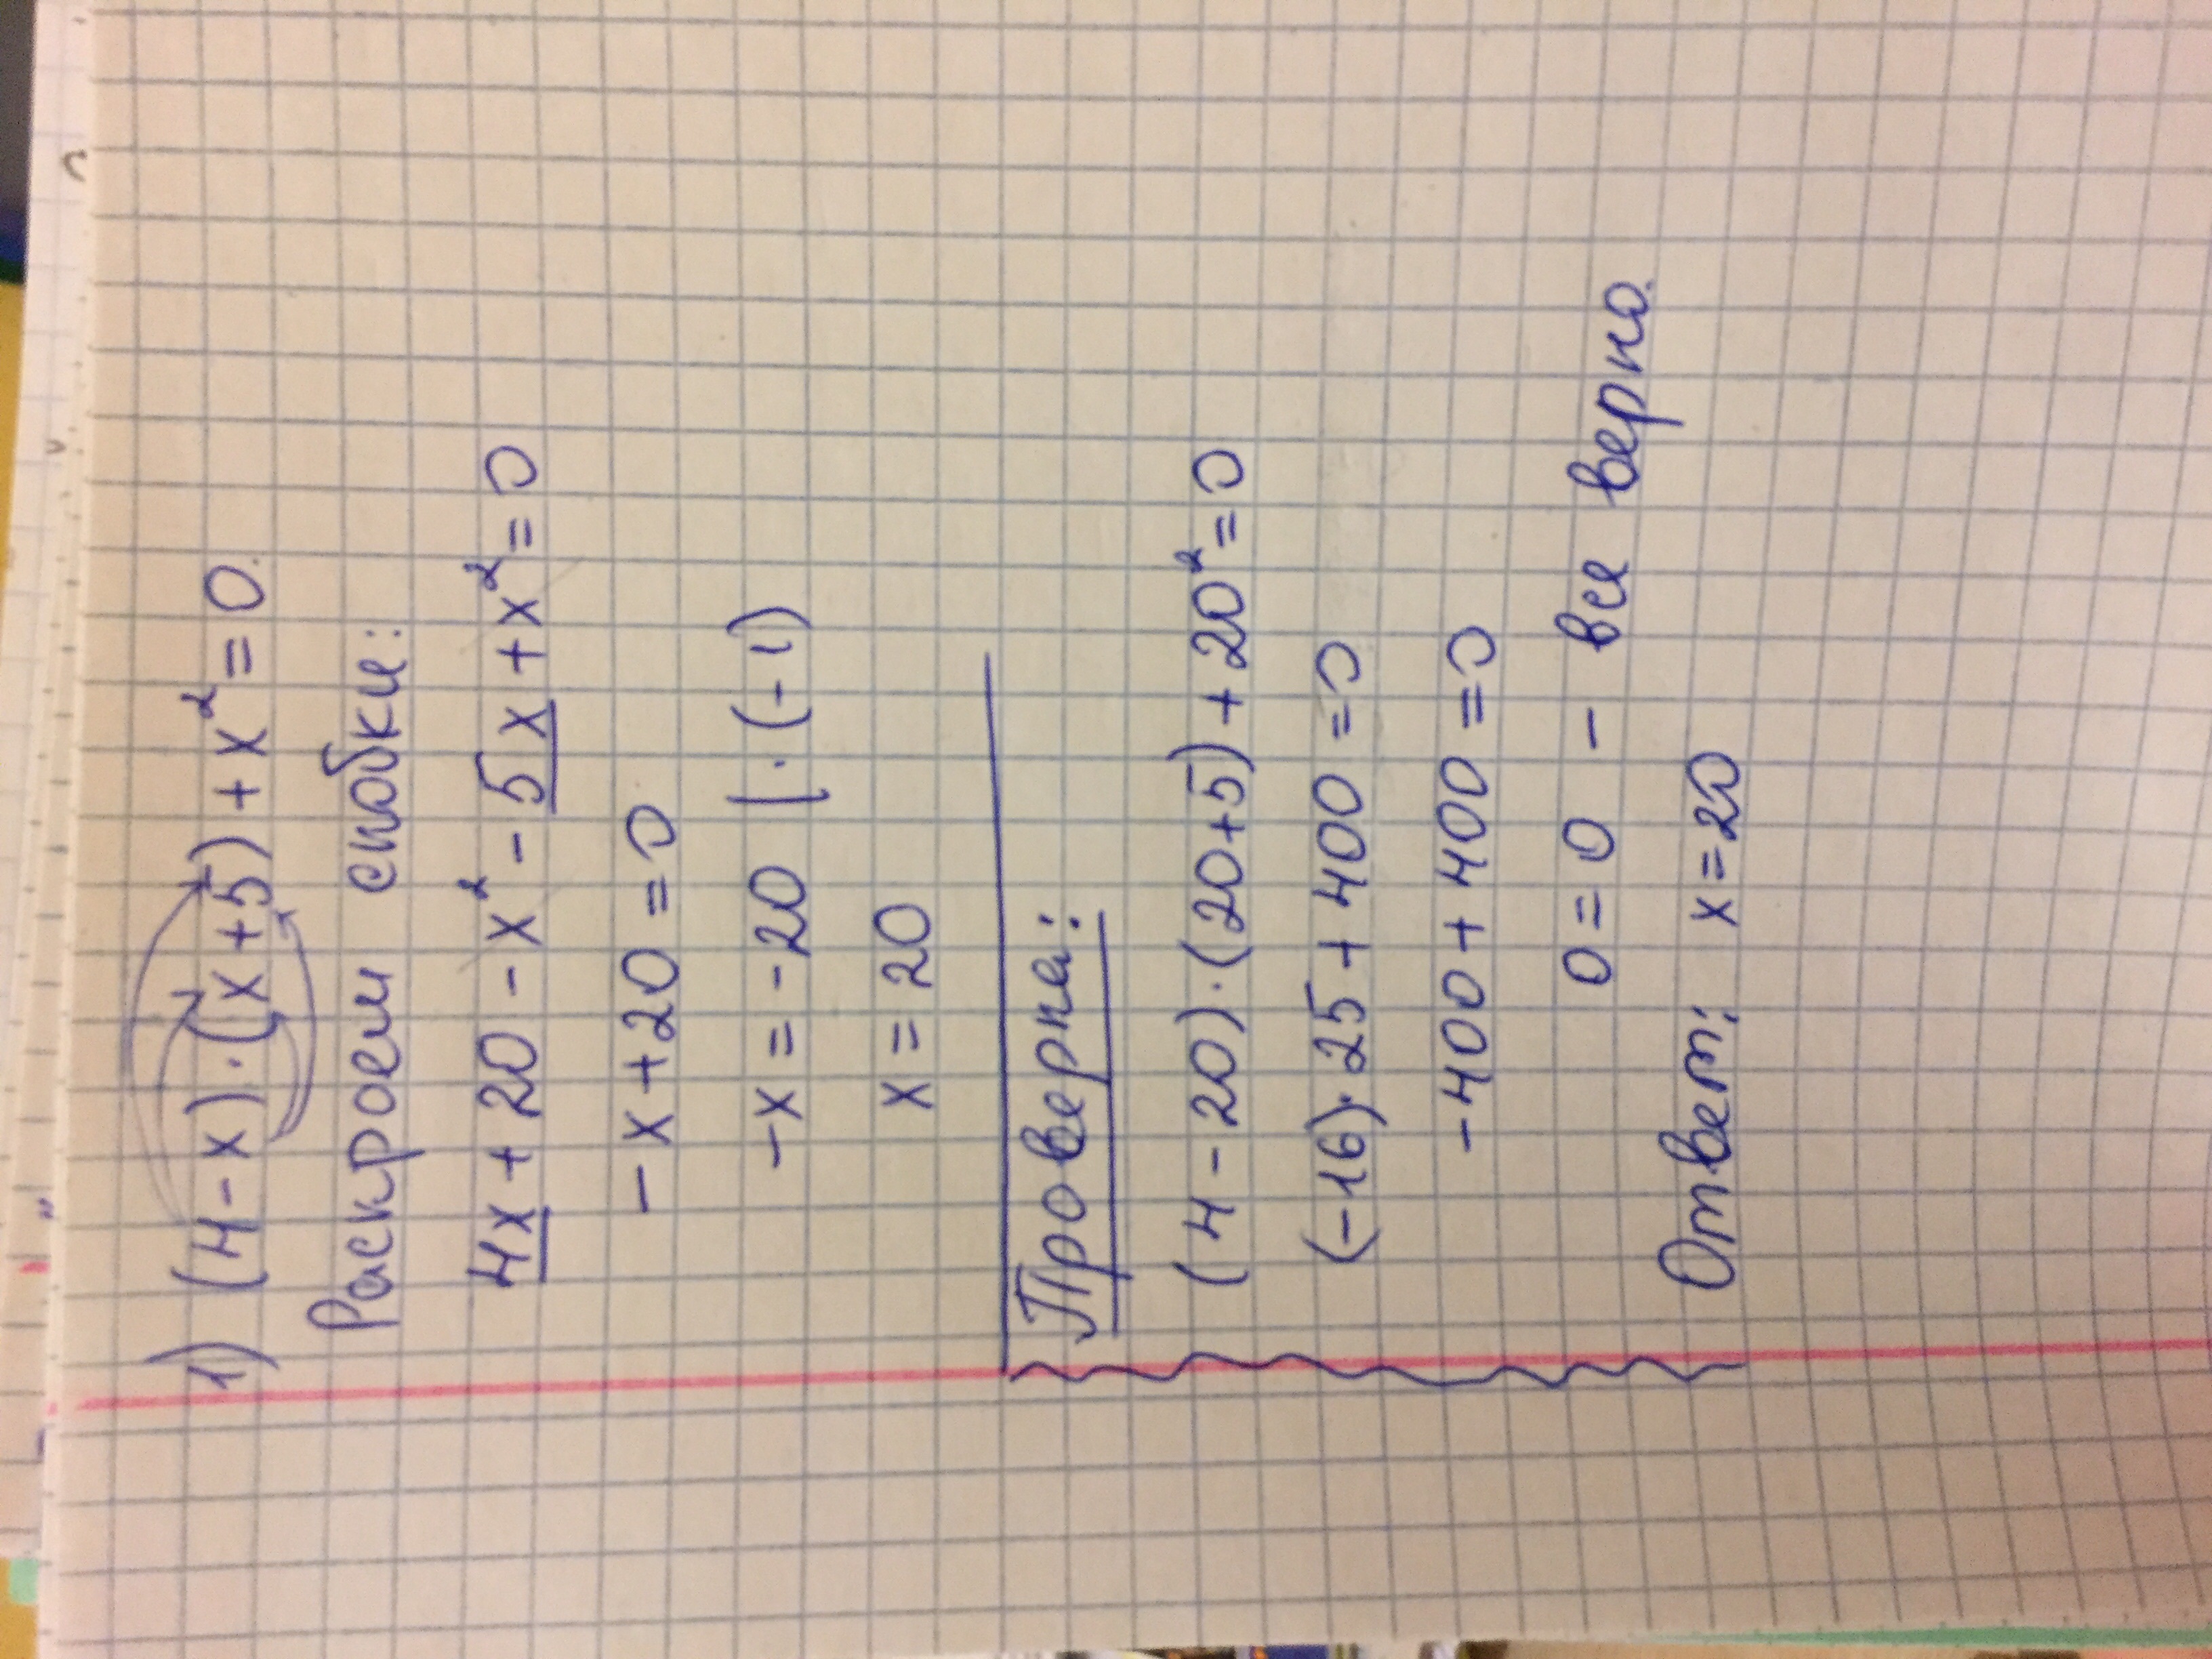 1) (4-x)·(x+5)+x²=0.
Раскроем скобки:
4x+20-x²-5x+x²=0
-x+20=0
-x=-20 |·(-1)
x=20
Проверка:
(4-20)·(20+5)+20²=0
(-16)·25+400=0
-400+400=0
0=0 - все верно.
Ответ: x=20